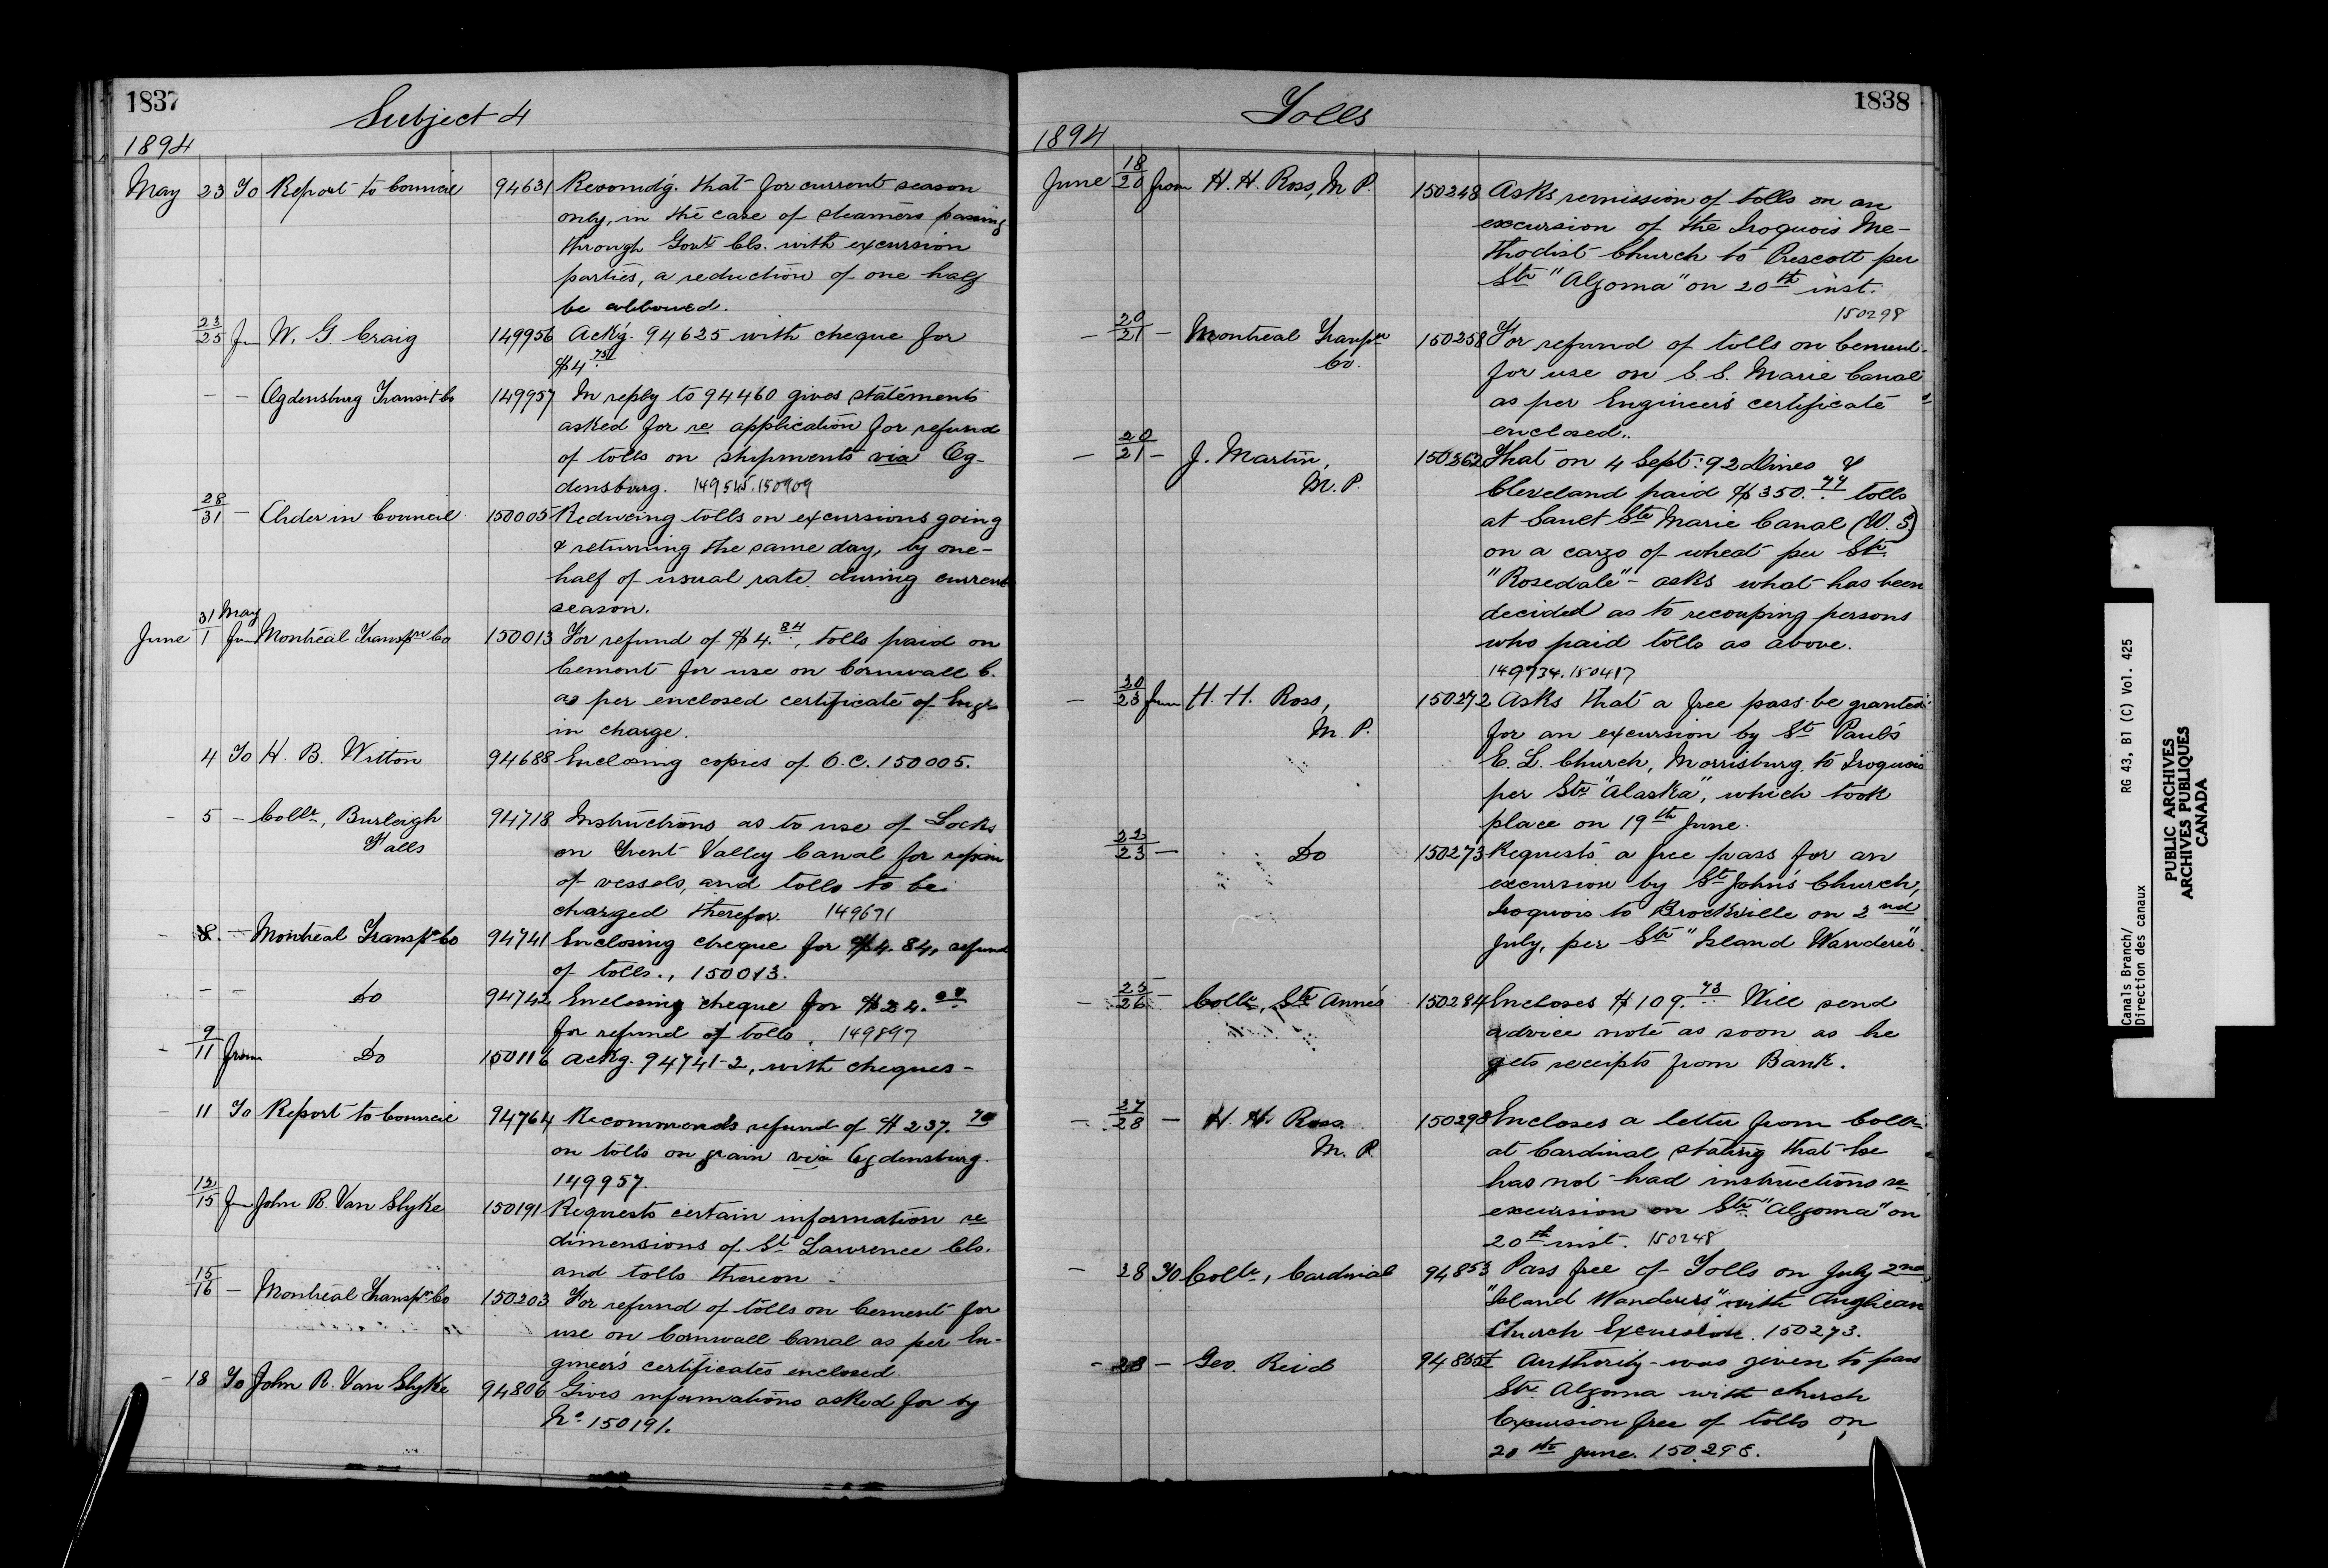 1837
Subject 4
1894
May 23 To Report to Council 94631 Recomdg. that for current season
only, in the case of steamers passing
through Govt Cls. with excursion
parties, a reduction of one half
be allowed.
23/25 fm W. G. Craig 149956 Ackg. 94625 with cheque for
$4.75
— — Ogdensburg Transit Co 149957 In reply to 94460 gives statements
asked for re application for refund
of tolls on shipments via Og-
densburg. 149545.150909
28/31 — Order in Council 150005 Reducing tolls on excursions going
& returning the same day, by one-
half of usual rate during current
season.
31 May
June 1 from Montreal Transpn Co 150013 For refund of $4.84, tolls paid on
Cement for use on Cornwall C.
as per enclosed certificate of Engr
in charge.
4 To H. B. Witton 94688 Enclosing copies of O.C. 150005.
— 5 — Collr, Burleigh 94718 Instructions as to use of Locks
Falls on Trent Valley Canal for repair
of vessels, and tolls to be
charged therefor. 149671
— 8. — Montreal Transpn Co 94741 Enclosing cheque for $4.84, refund
of tolls., 150013.
— — Do 94742 Enclosing cheque for $24.00
for refund of tolls. 149897
- 9/11 from Do 150116 Ackg. 94741-2, with cheques-
— 11 To Report to Council 94764 Recommends refund of $237.70
on tolls on grain via Ogdensburg.
149957.
12/15 fm John R. Van Slyke 150191 Requests certain information re
dimensions of St Lawrence Cls.
and tolls thereon.
15/16 — Montreal Transpn Co 150203 For refund of tolls on Cement for
use on Cornwall Canal as per En-
gineer's certificates enclosed.
— 18 To John R. Van Slyke 94806 Gives informations asked for by
No 150191.
1838
Tolls
1894
June 18/20 from H. H. Ross, M.P. 150248 Asks remission of tolls on an
excursion of the Iroquois Me-
thodist Church to Prescott per
Str "Algoma" on 20th inst.
150298
— 20/21 — Montreal Transpn 150258 For refund of tolls on Cement
Co. for use on S. S. Marie Canal
as per Engineer's certificate
enclosed..
— 20/21 — J. Martin, 150262 That on 4 Sept: 92 &
M.P. Cleveland paid $350. tolls
at Sault Ste Marie Canal (U.S)
on a cargo of wheat per Str.
"Rosedale" - asks what has been
decided as to recouping persons
who paid tolls as above.
149734.150417
— 20/23 from H. H. Ross, 150272 Asks that a free pass be granted
M.P. for an excursion by St Paul's
E. L. Church, Morrisburg to Iroquois
per Str "Alaska", which took
place on 19th June.
22/23 — Do 150273 Requests a free pass for an
excursion by St John's Church,
Iroquois to Brockville on 2nd
July, per Str "Island Wanderer".
— 25/26 — Collr, Ste Anne's 150284 Encloses $109.73 Will send
advice note as soon as he
gets receipts from Bank.
— 27/28 — H. H. Ross 150298 Encloses a letter from Collr
M.P. at Cardinal stating that he
has not had instructions re
excursion on Str "Algoma" on
20th inst. 150248
— 28 To Collr, Cardinal 94853 Pass free of Tolls on July 2nd
"Island Wanderers" with Anglican
Church Excursion. 150273.
- 28 — Geo. Reid Authority was given to pass
Str. Algoma with church
Excursion free of tolls on
20th June. 150298.
Canals Branch/
Direction des canaux
RG 43, B1 (C) Vol. 425
PUBLIC ARCHIVES
ARCHIVES PUBLIQUES
CANADA